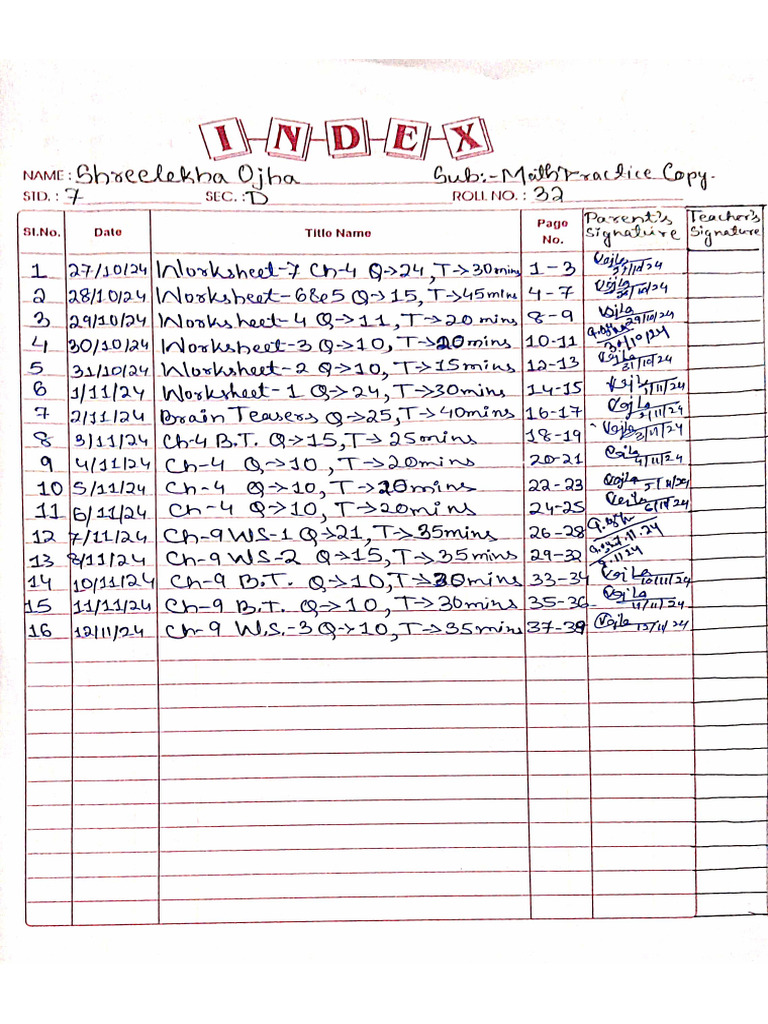 INDEX
NAME : Shreelekha Ojha Sub:- Math Practice Copy.
STD. : 7 SEC. : D ROLL NO. : 32
Sl.No. Date Title Name Page No. Parent's Signature Teacher's Signature
1 27/10/24 Worksheet-7 Ch-4 Q→24, T→30mins 1-3
2 28/10/24 Worksheet-6&5 Q→15, T→45mins 4-7
3 29/10/24 Worksheet-4 Q→11, T→20 mins 8-9 29/10/24
4 30/10/24 Worksheet-3 Q→10, T→20mins 10-11
5 31/10/24 Worksheet-2 Q→10, T→15mins 12-13 31/10/24
6 1/11/24 Worksheet-1 Q→24, T→30mins 14-15 1/11/24
7 2/11/24 Brain Teasers Q→25, T→40mins 16-17 2/11/24
8 3/11/24 Ch-4 B.T. Q→15, T→25mins 18-19 3/11/24
9 4/11/24 Ch-4 Q→10, T→20mins 20-21 4/11/24
10 5/11/24 Ch-4 Q→10, T→20mins 22-23 5/11/24
11 6/11/24 Ch-4 Q→10, T→20mins 24-25 6/11/24
12 7/11/24 Ch-9 WS-1 Q→21, T→35mins 26-28
13 8/11/24 Ch-9 WS-2 Q→15, T→35mins 29-32
14 10/11/24 Ch-9 B.T. Q→10, T→30mins 33-34 10/11/24
15 11/11/24 Ch-9 B.T. Q→10, T→30mins 35-36 11/11/24
16 12/11/24 Ch-9 W.S.-3 Q→10, T→35mins 37-39